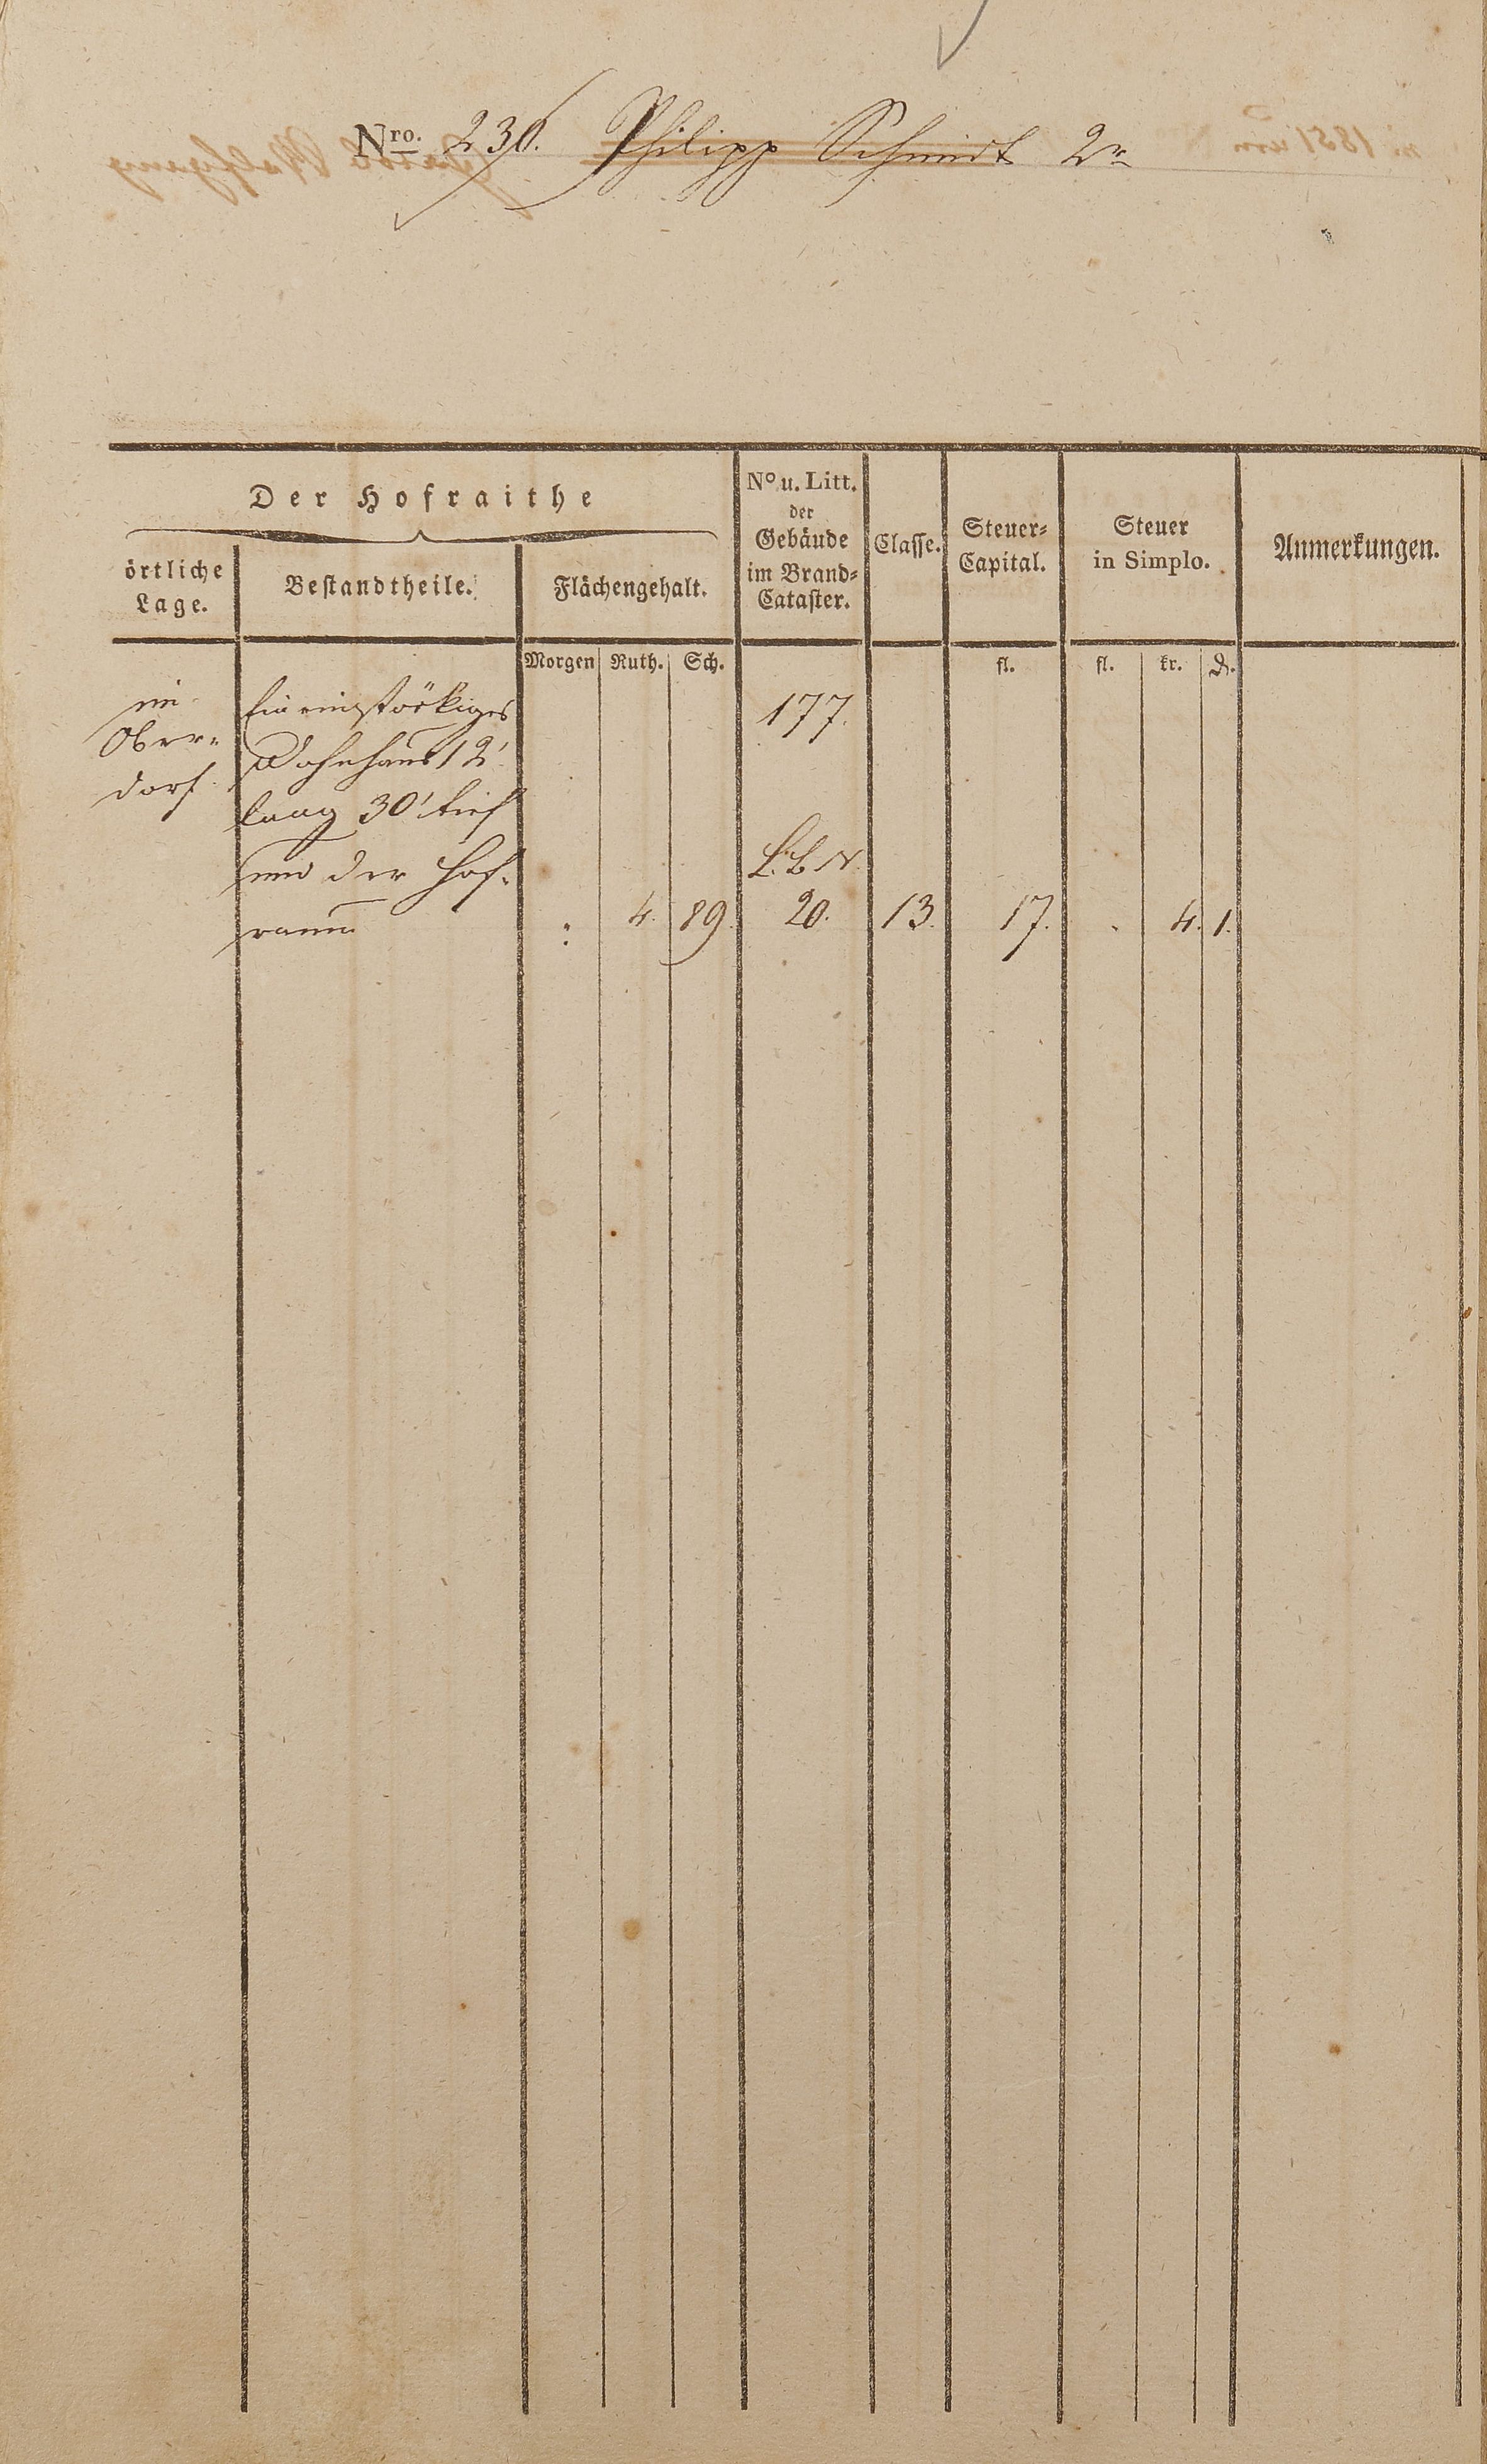 Nro. 230. Philipp Schmidt 2r
Der Hofraithe
örtliche
Lage.
Bestandtheile.
Flächengehalt.
No u. Litt.
der
Gebäude
im Brand-
Cataster.
Classe.
Steuer-
Capital.
Steuer
in Simplo.
Anmerkungen.
Morgen Ruth. Sch.
fl.
fl. kr. d.
im
Ober-
dorf
Ein einstöckiges
Wohnhaus 12'
lang 30' tief
und der Hof-
raum
177.
4. 89. 20. 13. 17. 4. 1.